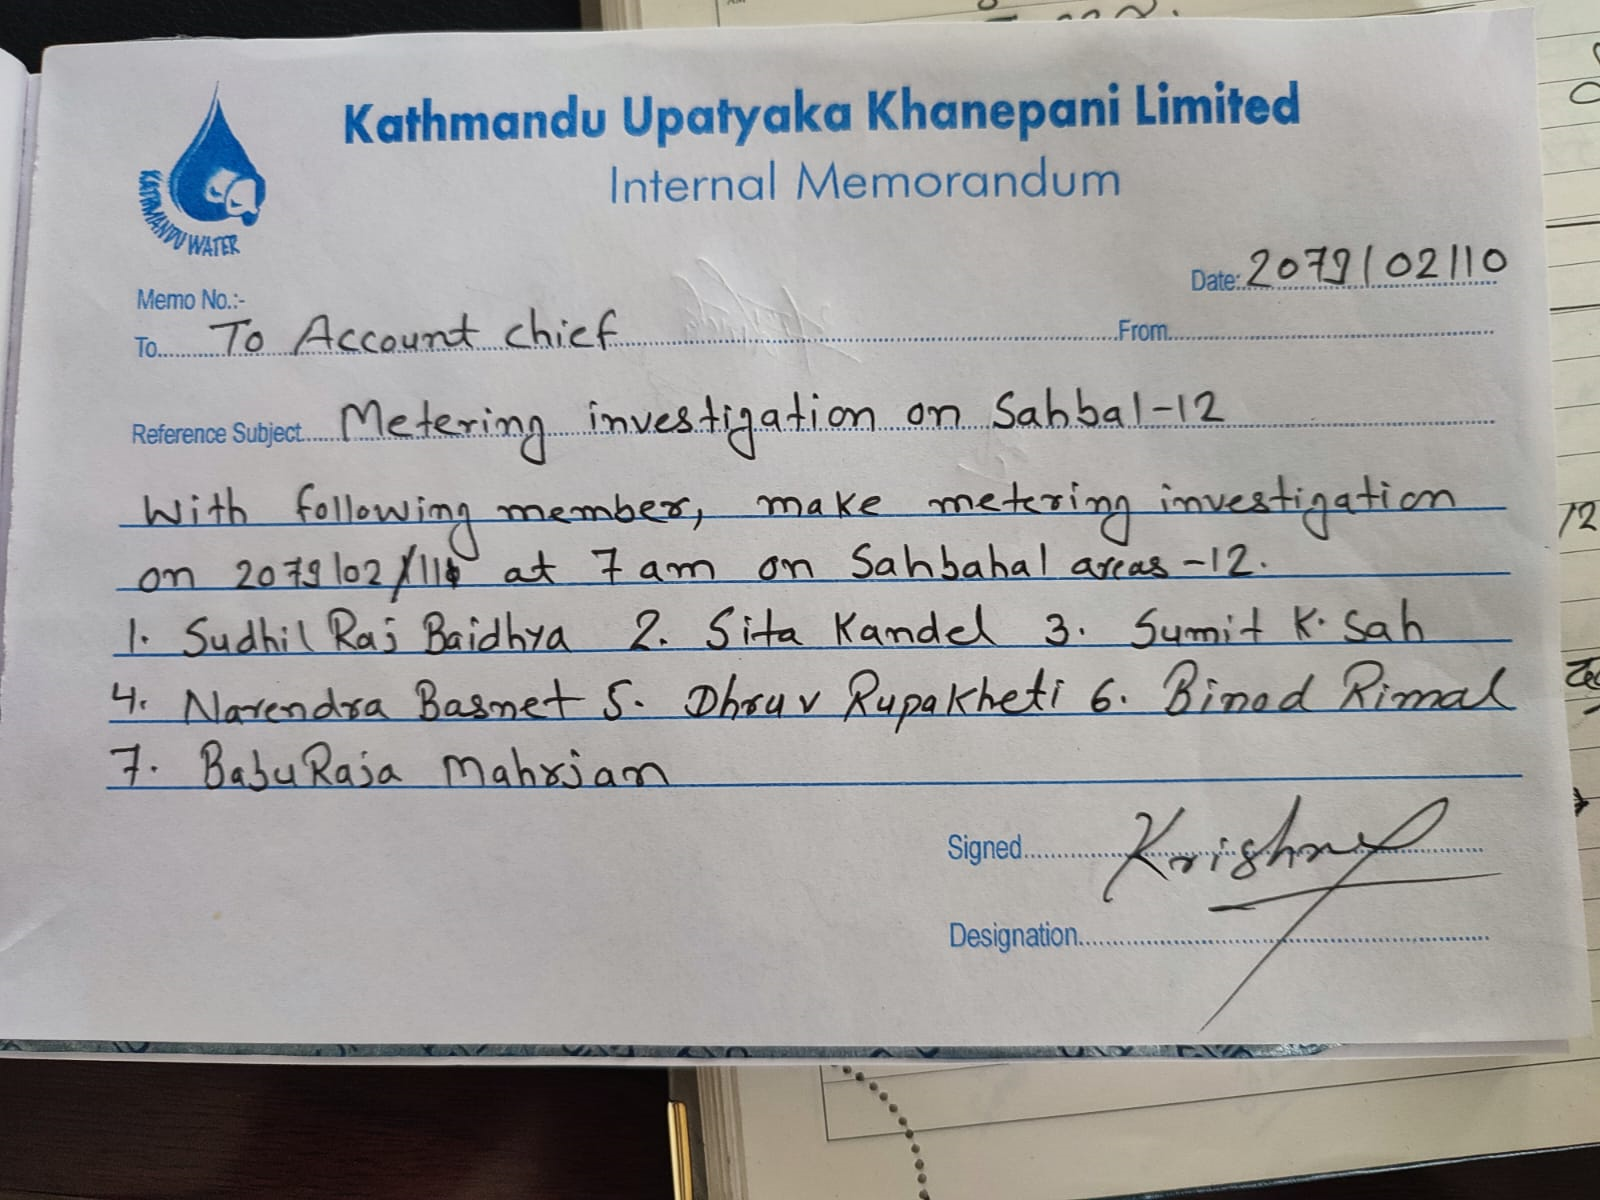 Kathmandu Upatyaka Khanepani Limited
Internal Memorandum
KATHMANDU WATER
Date: 2079/02/10
Memo No.:-
To To Account chief From
Reference Subject Metering investigation on Sahbal-12
With following member, make metering investigation
on 2079/02/11 at 7 am on Sahbahal areas -12.
1. Sudhil Raj Baidhya 2. Sita Kandel 3. Sumit K. Sah
4. Narendra Basnet 5. Dhruv Rupakheti 6. Binod Rimal
7. Babu Raja Maharjan
Signed Krishna
Designation
12